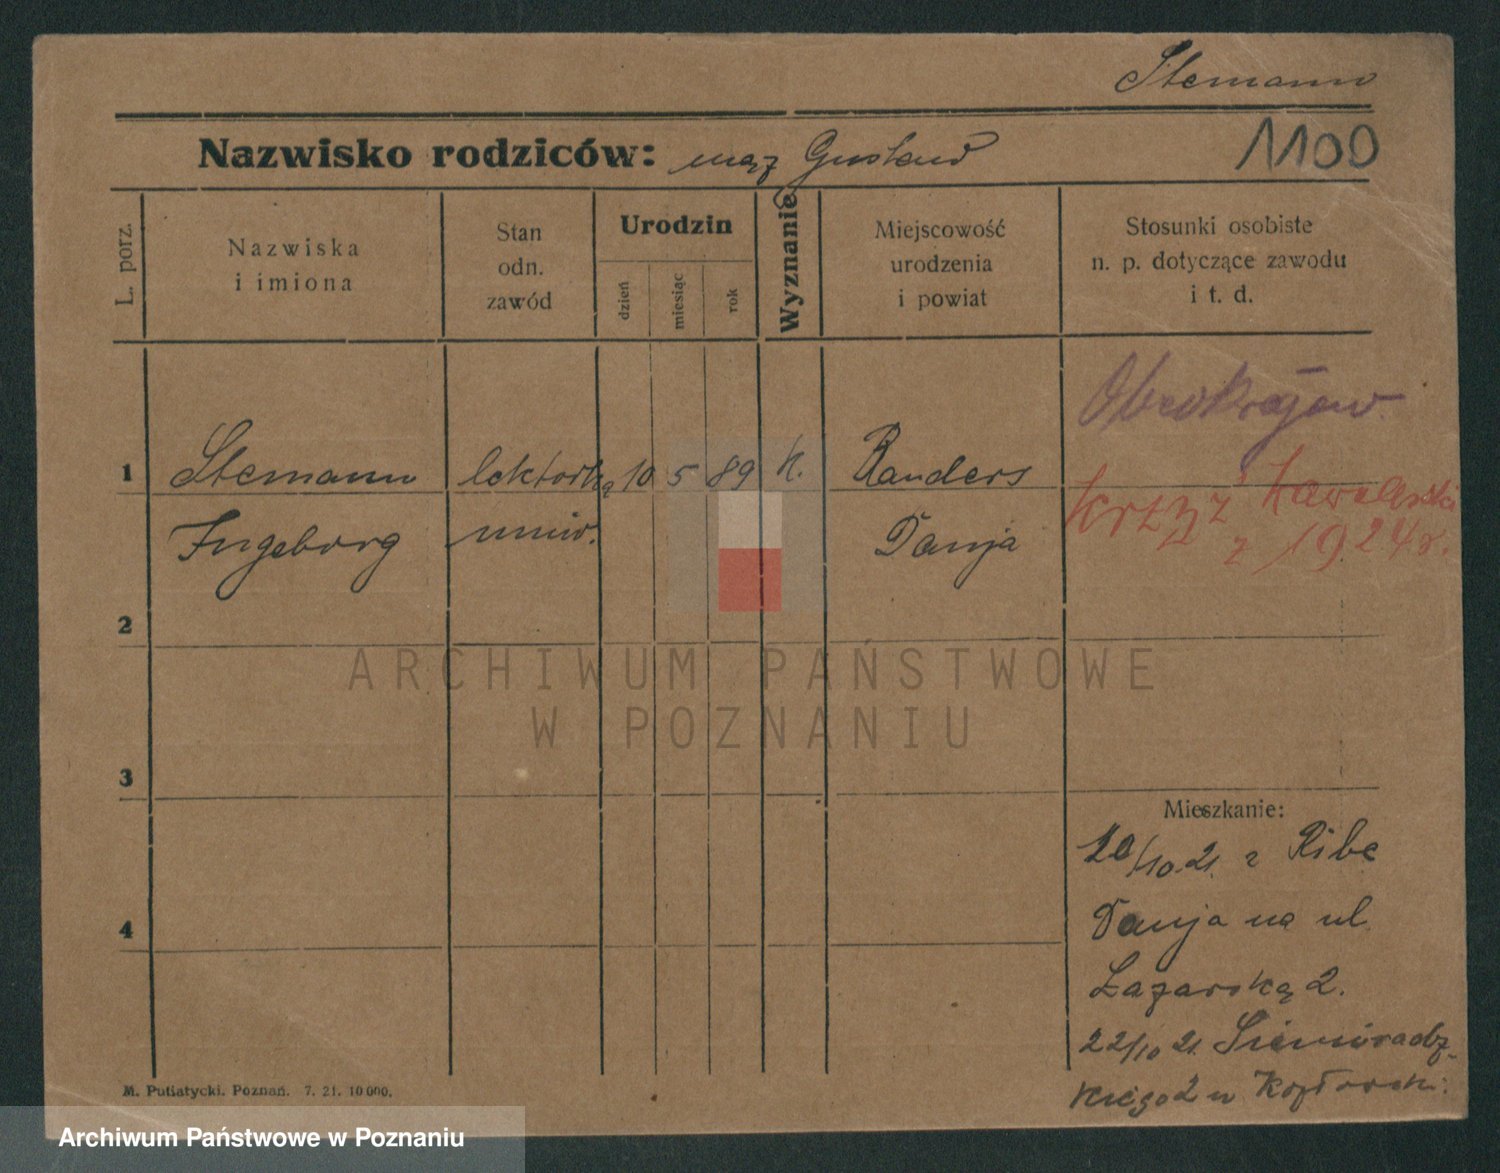 Stemann
Nazwisko rodziców: mąż Gustaw
1100
L. porz.
Nazwiska
i imiona
Stan
odn.
zawód
Urodzin
dzień
miesiąc
rok
Wyznanie
Miejscowość
urodzenia
i powiat
Stosunki osobiste
n. p. dotyczące zawodu
i t. d.
Obcokrajow.
1 Stemann lektorką 10 5 89 k. Randers
Krzyż Kawalerski
z 1924 r.
Ingeborg uniw. Danja
2
ARCHIWUM PAŃSTWOWE
W POZNANIU
3
Mieszkanie:
20/10.21. z Ribe
Danja na ul.
Łazarską 2.
4
22/10 21. Siemiradz-
kiego 2 u
M. Putiatycki. Poznań. 7. 21. 10 000.
Archiwum Państwowe w Poznaniu